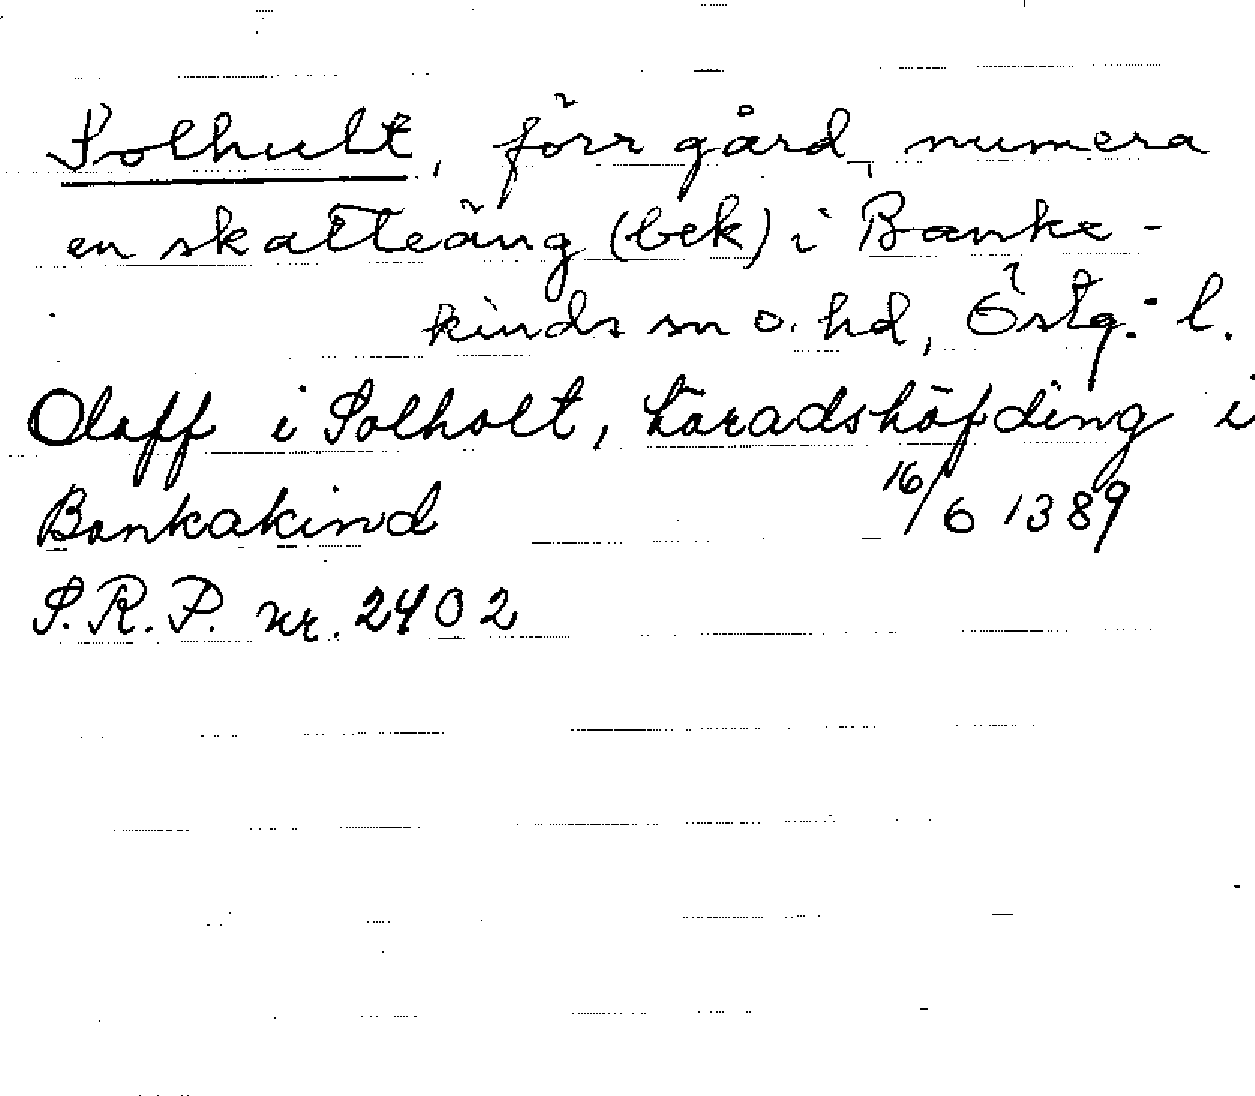 Solhult, förr gård, numera
en skatteäng (bek) i Banke-
kinds sn o. hd, Östg:l.
Olaff i Solholt, häradshöfding i
Bankakind 16/6 1389
S.R.P. nr. 2402